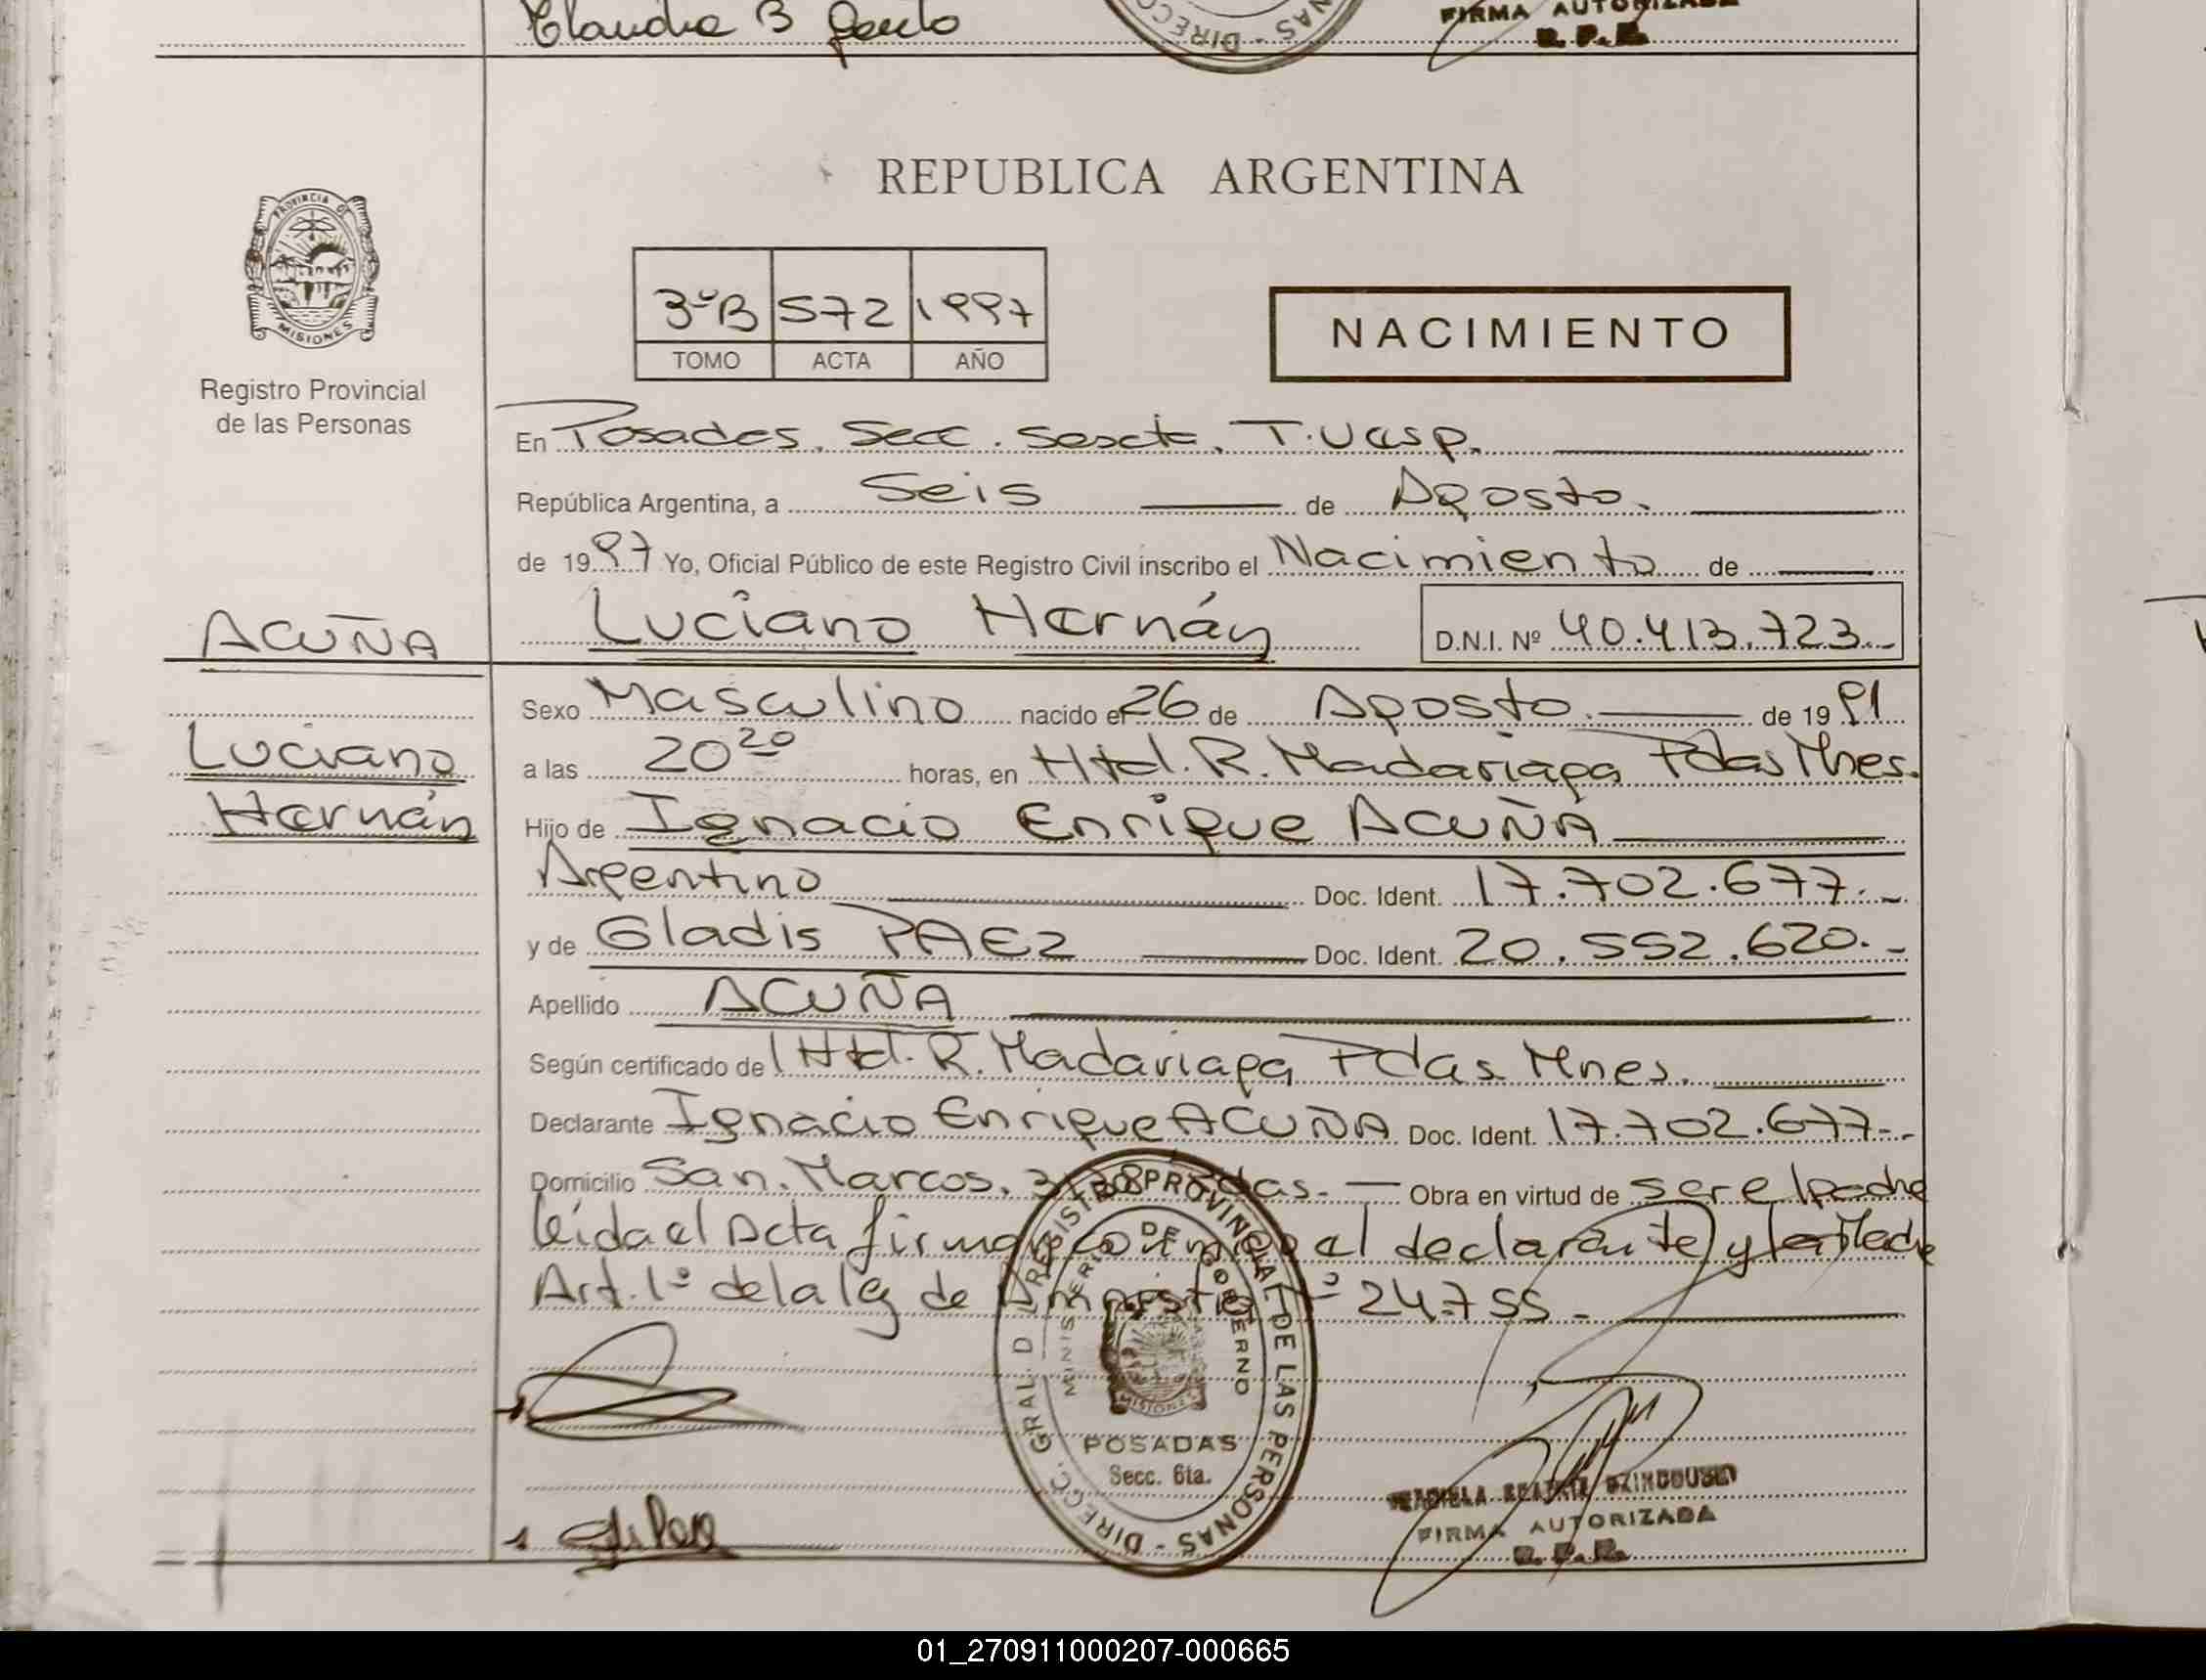 Claudia B
FIRMA AUTORIZADA
R. P. P.
REPUBLICA ARGENTINA
PROVINCIA DE
MISIONES
Registro Provincial
de las Personas
3ºB 572 1997
TOMO ACTA AÑO
NACIMIENTO
En Posadas. Secc. Sexta. T. Uasp.
República Argentina, a Seis de Agosto.
de 1997 Yo, Oficial Público de este Registro Civil inscribo el Nacimiento de
ACUÑA
Luciano Hernán D.N.I. Nº 40.413.723.-
Luciano
Hernán
Sexo Masculino nacido el 26 de Agosto. de 1991
a las 20 20 horas, en Htal. R. Madariaga Pdas Mnes.
Hijo de Ignacio Enrique ACUÑA
Argentino Doc. Ident. 17.702.677.-
y de Gladis PAEZ Doc. Ident. 20.552.620.-
Apellido ACUÑA
Según certificado del Htal. R. Madariaga Pdas Mnes.
Declarante Ignacio Enrique ACUÑA Doc. Ident. 17.702.677.-
Domicilio San. Marcos. Pdas. Obra en virtud de ser el padre
leida el Acta firma conmigo el declarante y la Madre
Art. 1º de la ley de Amnistia Nº 24.755.-
DIRECC. GRAL. D REGISTRO PROVINCIAL DE LAS PERSONAS
MINISTERIO DE GOBIERNO
MISIONES
POSADAS
Secc. 6ta.
FIRMA AUTORIZADA
R. P. P.
01_270911000207-000665